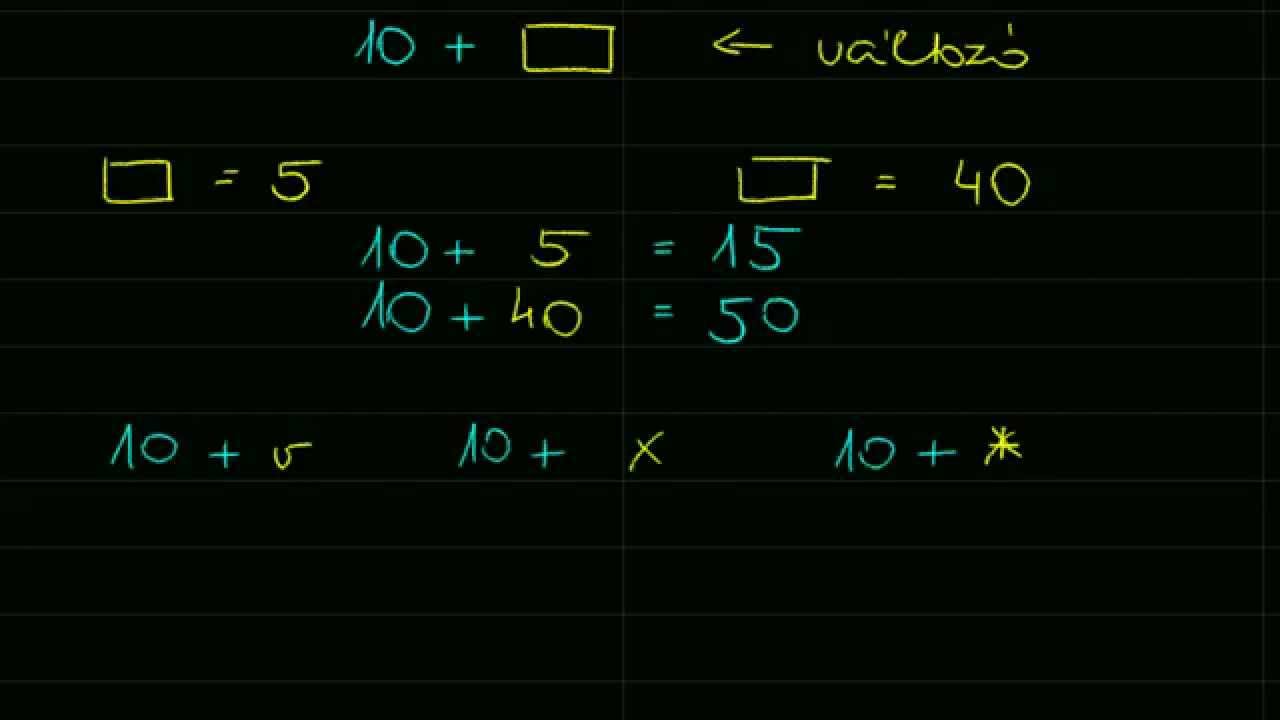 10 + □ ← változó
□ = 5 □ = 40
10 + 5 = 15
10 + 40 = 50
10 + v 10 + x 10 + *